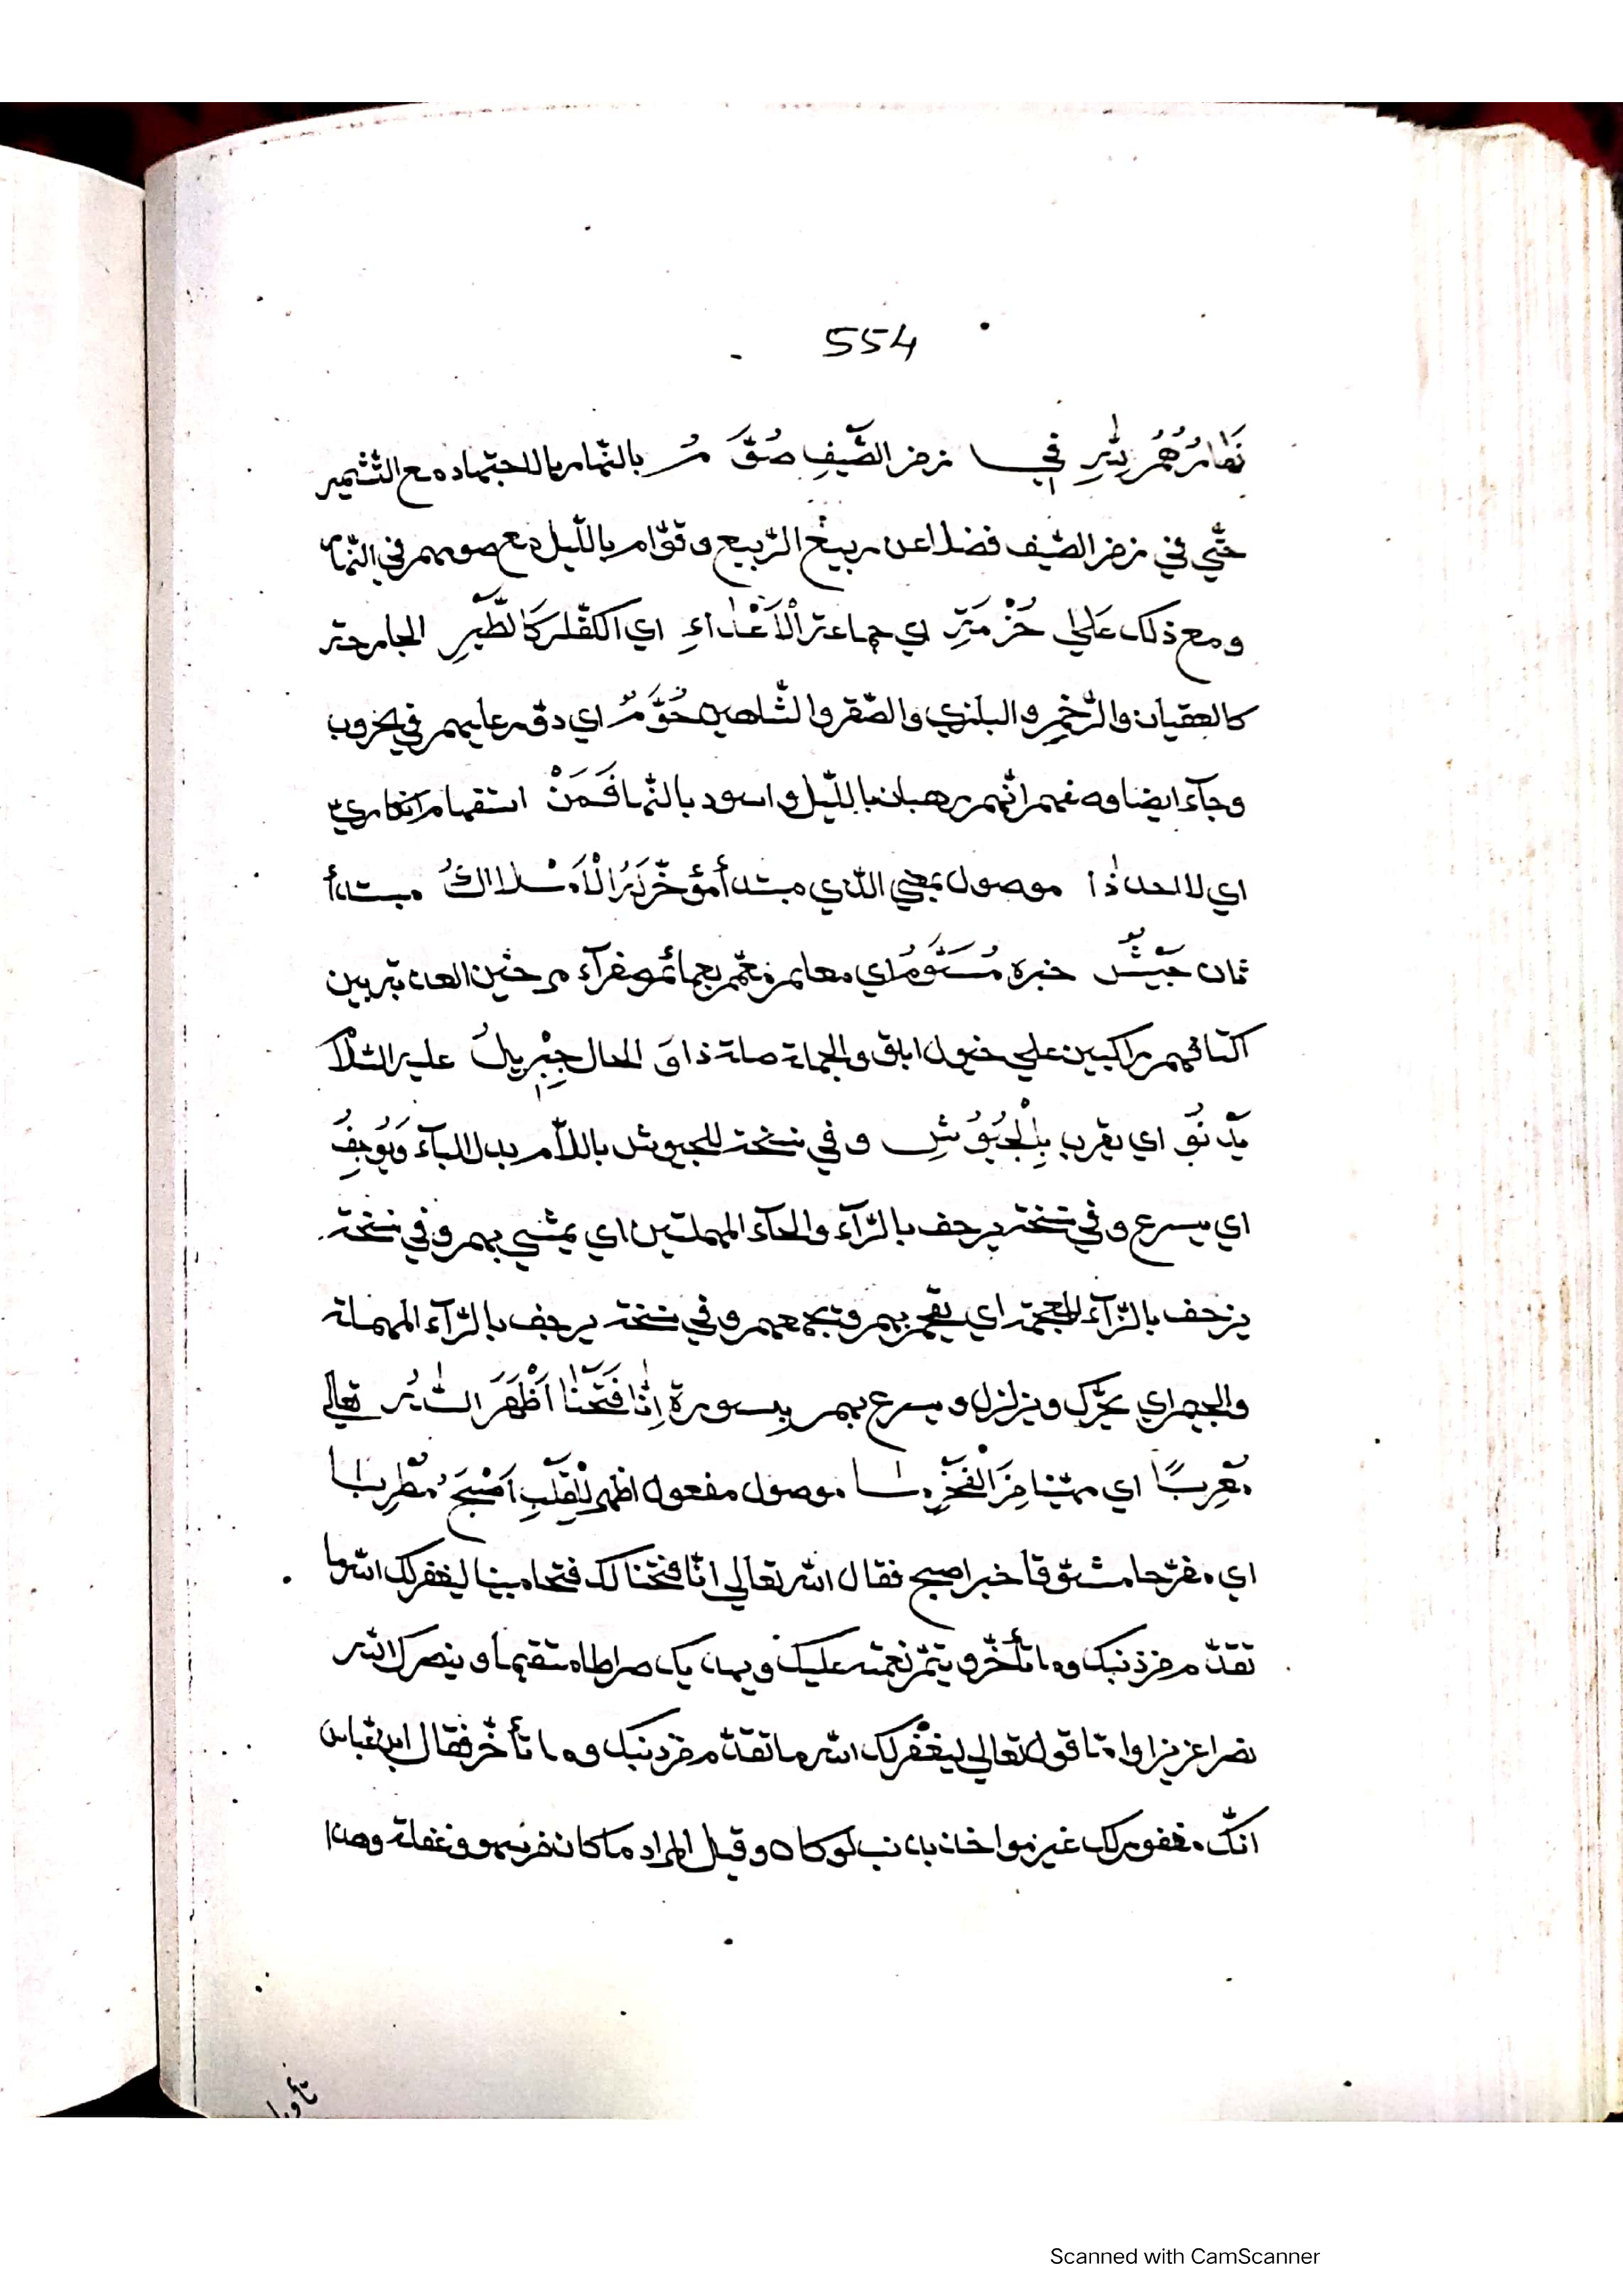 554
نَهَارُهُمُ لِلّٰهِ فِي زمن الصَّيْفِ صُوَّمُ بالنّهار بالاجتهاد مع التّشمير
حتّي في زمن الصّيف فضلا عن ربيع الرّبيع وقوّام بالليل مع صومهم في النّهار
ومع ذلك عَلٰي حُزْمَتِ اي جماعة الْاَعْدٰاءِ اي الكفّار كَالطَّيْرِ الجارحة
كالعقبان والرّخم والبلزي والصّقر والشّاهين حُوَّمُ اي دوّم عليهم في الحروب
وجآء ايضا وصفهم انّهم رهبان باللّيل واسود بالنّها فَمَنْ استفهام انكاريّ
اي لا احد ذٰا موصول بمعني الّذي مبتدأ مؤخّر لَهُ الْاَمْلاكُ مبتدأ
ثان جَيْشٌ خبره مُسَوَّمُ اي معلم معمّم بعمائم صفرآء مرخين العذبة بين
اكتافهم راكبين علي خيول ابلق والجملة صلة ذا وَ الحال جِبْرِيلُ عليه السّلا
يَدْنُو اي يقرب بِالْجُيُوْشِ و في نسخة للجيوش باللّام بدل الباء وَيُوجِفُ
اي يسرع وفي نسخة يرحف بالرّآء والحآء المهملتين اي يمشي بهم و في نسخة
يزحف بالزّآء المعجمة اي يقحم بهم ويجمعهم و في نسخة يرجف بالرّآء المهملة
والجيم اي يحرّك ويزلزل ويسرع بهم بِسورة إِنّٰا فَتَحْنٰا اَظْهَرَ اللّٰهُ تعالي
مُعْرِبًا اي مبيّنا مِنَ الْفَخْرِ مٰا موصول مفعول اظهر لْقَلْبِ اَصْبَحَ مُطْرِبٰا
اي مفرّحا مشوّقا خبر اصبح فقال اللّه تعالي انّا فتحنا لك فتحا مبينا ليغفر لك اللّه ما
تقدّم من ذنبك وما تأخّر ويتمّ نعمته عليك ويهديك صراطا مستقيما وينصرك اللّه
نصرا عزيزا وامّا قوله تعالي ليغفر لك اللّه ما تقدّم من ذنبك وما تأخّر فقال ابن عبّاس
انّك مغفور لك غير مواخذ بذنب لو كان وقيل المراد ما كان من سهو وغفلة وهذا
تأويل
Scanned with CamScanner